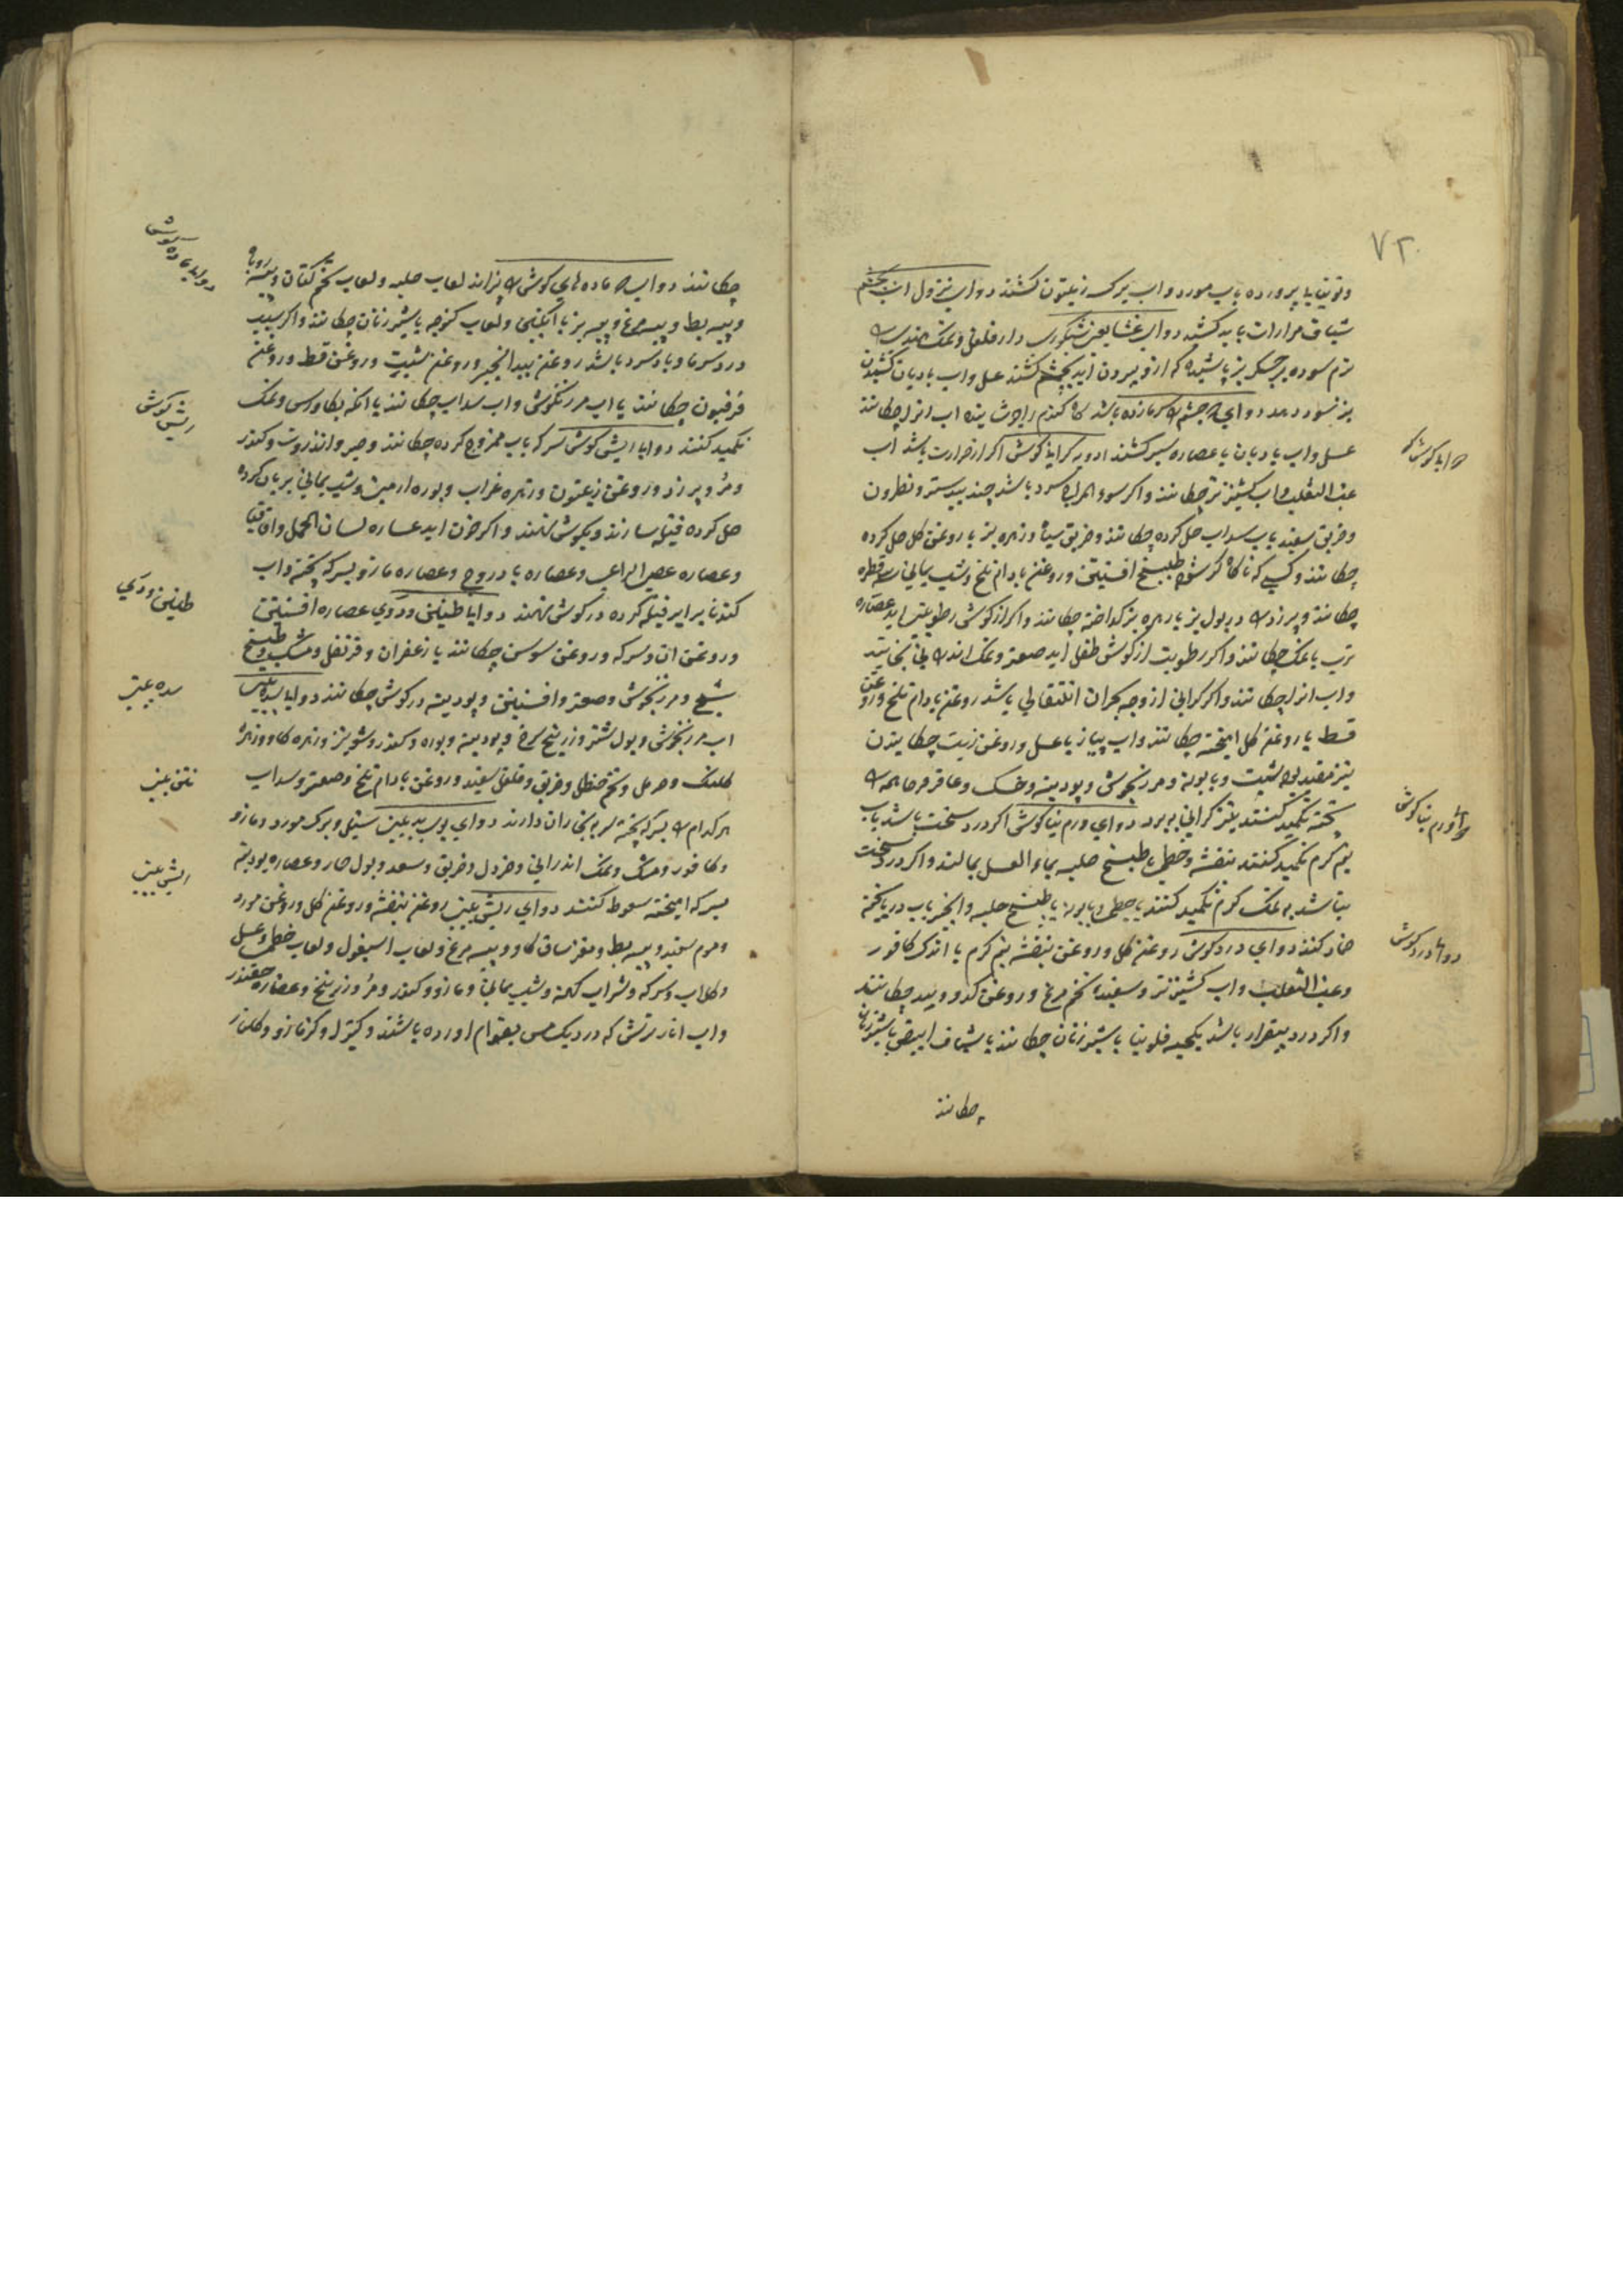 ۷۲
وتوتیای پرورده بآب مورد واب برک زیتون کشند دوای نزول آب بچشم
شیاف مرارات باید کشید دوای غشا یعنی شبکوری دار فلفل ونمک هندی
نرم سوده بر جکر بز پاشیده که ازو بیرون اید بچشم کشند عسل واب بادیان کشیدن
نیز سود دهد دوای چشم که سرمازده باشد کاه کندم را جوشانیده اب انرا چکانند
عسل واب بادیان یا عصاره سیر کشند ادویه کرانی کوش اکر از حرارت باشد اب
عنب الثعلب واب کشنیز تر چکانند واکر سوء المزاج سرد باشد جند بیدستر ونطرون
وخربق سفید بآب سداب حل کرده چکانند وخربق سیاه وزهره بز با روغن کل حل کرده
چکانند وکسی که ناکاه کر شود طبیخ افسنتین وروغن بادام تلخ وشب یمانی سه قطره
چکانند وبول بز با زهره بز کداخته چکانند واکر از کوش رطوبتی اید عصاره
ترب با نمک چکانند واکر رطوبت از کوش طفل اید صعتر ونمک اندرانی بخایند
واب انرا چکانند واکر کرانی از وجه بحران انتقالی باشد روغن بادام تلخ وروغن
قسط با روغن کل امیخته چکانند واب پیاز با عسل وروغن زیت چکانیدن
نیز مفید بود شبت وبابونه ومرزنجوش وپودینه وخسک وعاقرقرحا همه
پخته تکمید کنند نیز کرانی ببرد دوای ورم بناکوش اکر درد سخت باشد بآب
نیم کرم تکمید کنند بنفشه وخطمی با طبیخ حلبه بماء العسل بمالند واکر درد سخت
نباشد به نمک کرم تکمید کنند یا خطمی وبابونه یا طبیخ حلبه وانجیر بآب دریا پخته
ضماد کنند دوای درد کوش روغن کل وروغن بنفشه نیم کرم با اندک کافور
وعنب الثعلب واب کشنیز تر وسفیده تخم مرغ وروغن کدو وبید چکانند
واکر درد بیقرار باشد یکحبه فلونیا با شیر زنان چکانند یا شیاف ابیض با شیر زنان
چکانند
کرانی کوش
دوای ورم بناکوش
دوای درد کوش
چکانند دوای ماده های کوش پزاند لعاب حلبه ولعاب تخم کتان وپیه روباه
وپیه بط وپیه مرغ وپیه بز با انکبین ولعاب کنوچه با شیر زنان چکانند واکر سبب
درد سرما وباد سرد باشد روغن بید انجیر وروغن شبت وروغن قسط وروغن
فرفیون چکانند یا اب مرزنکوش واب سداب چکانند یا انکه بکاورس ونمک
تکمید کنند دوای ریش کوش سرکه بآب ممزوج کرده چکانند وصبر وانزروت وکندر
ومر وروغن زیتون وزهره غراب وبوره ارمنی وشب یمانی بریان کرده
حل کرده فتیله سازند وبکوش نهند واکر خون اید عصاره لسان الحمل واقاقیا
وعصاره عصی الراعی وعصاره بادروج وعصاره مازو بسرکه پخته واب
کندنا برابر فتیله کرده در کوش نهند دوای طنین ودوی عصاره افسنتین
وروغن ان وسرکه وروغن سوسن چکانند با زعفران وقرنفل ومشک وطبیخ
شیح ومرزنجوش وصعتر وافسنتین وپودینه در کوش چکانند دوای سده بینی
اب مرزنجوش وبول شتر وزرنیخ سرخ وپودینه وبوره وکندر وشونیز وزهره کاو وزهره
کلنک وحرمل وتخم حنظل وخربق وفلفل سفید وروغن بادام تلخ وصعتر وسداب
هرکدام بسرکه پخته سر ببخار ان دارند دوای بوی بد بینی سنبل وبرک مورد ومازو
وکافور ومشک ونمک اندرانی وخردل وخربق وسعد وبول حمار وعصاره پودینه
بسرکه امیخته سعوط کنند دوای ریش بینی روغن بنفشه وروغن کل وروغن مورد
وموم سفید وپیه بط ومغز ساق کاو وپیه مرغ ولعاب اسبغول ولعاب خطمی وعسل
وکلاب وسرکه وشراب کهنه وشب یمانی ومازو وکندر ومر وزرنیخ وعصاره چقندر
واب انار ترش که در دیک مس بقوام اورده باشند وکتیرا وکزمازو وکلنار
دوای ماده کوش
ریش کوش
طنین ودوی
سده بینی
نتن بینی
ریش بینی